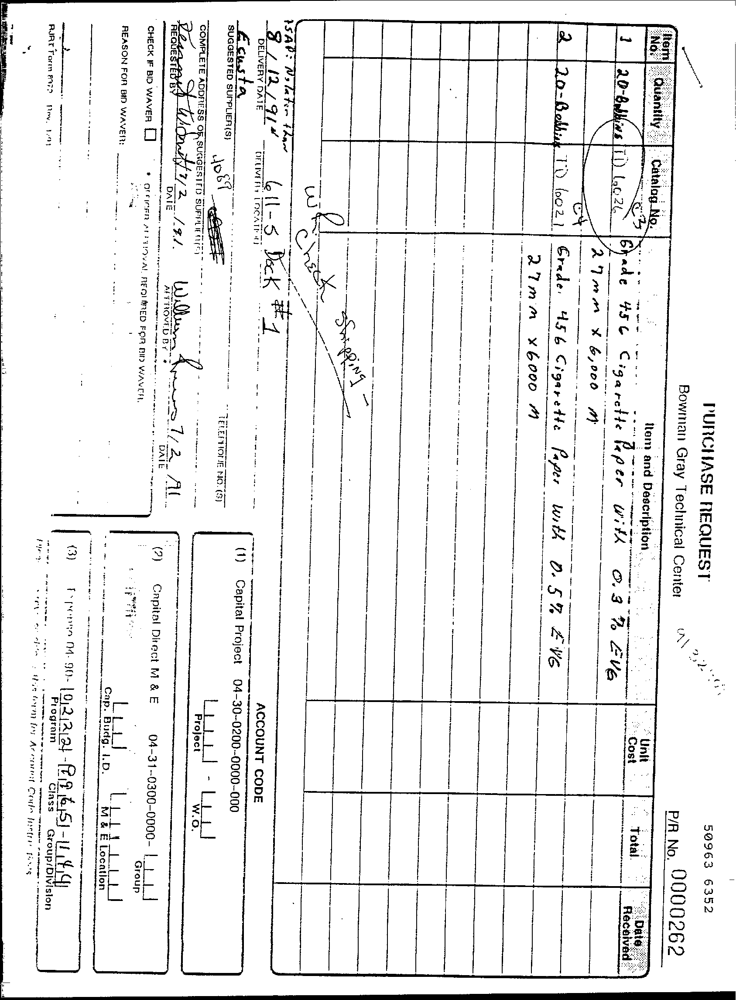 PURCHASE REQUEST
Bowman Gray Technical Center
50963 6352
P/R No. 0000262
Item No. Quantity Catalog No. Item and Description Unit Cost Total Date Received
1 20-Bobbins TD Grade 456 Cigarette Paper with 0.3% EVG
27mm x 6,000 M
2 20-Bobbins TD 1602 Grade 456 Cigarette Paper with 0.5% EVG
27mm x 6000 M
Check Shipping -
ASAP: No later than
8/12/91 611-5 Dock #1
DELIVERY DATE DELIVERY LOCATION
Ecusta
SUGGESTED SUPPLIER(S) TELEPHONE NO.(S)
4089
COMPLETE ADDRESS OF SUGGESTED SUPPLIER(S)
7/2/91 7/2/91
REQUESTED BY DATE APPROVED BY * DATE
CHECK IF BID WAVER * OFFICER APPROVAL REQUIRED FOR BID WAVER.
REASON FOR BID WAVER:
RJRT Form
ACCOUNT CODE
(1) Capital Project 04-30-0200-0000-000
Project - W.O.
(2) Capital Direct M & E 04-31-0300-0000-
Group
Cap. Budg. I.D. M & E Location
(3) Expense 04-90-
Program Class Group/Division